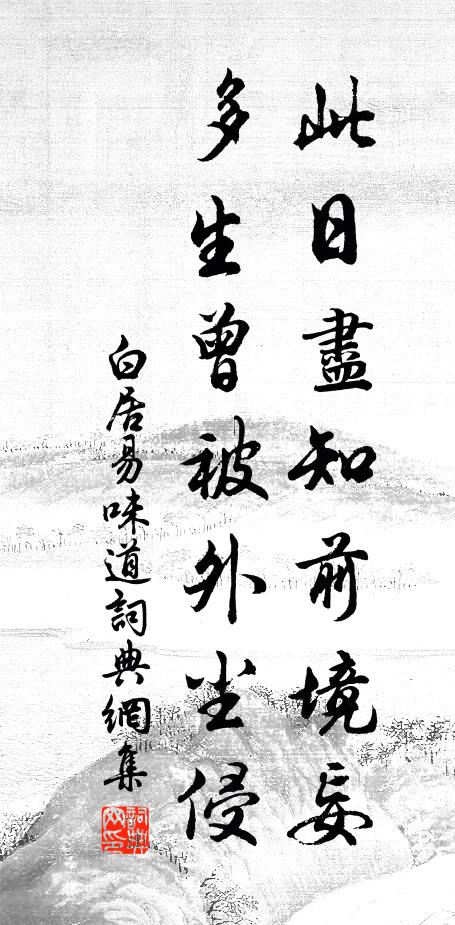 此日盡知前境妄
多生曾被外尘侵
白居易味道詞典網集